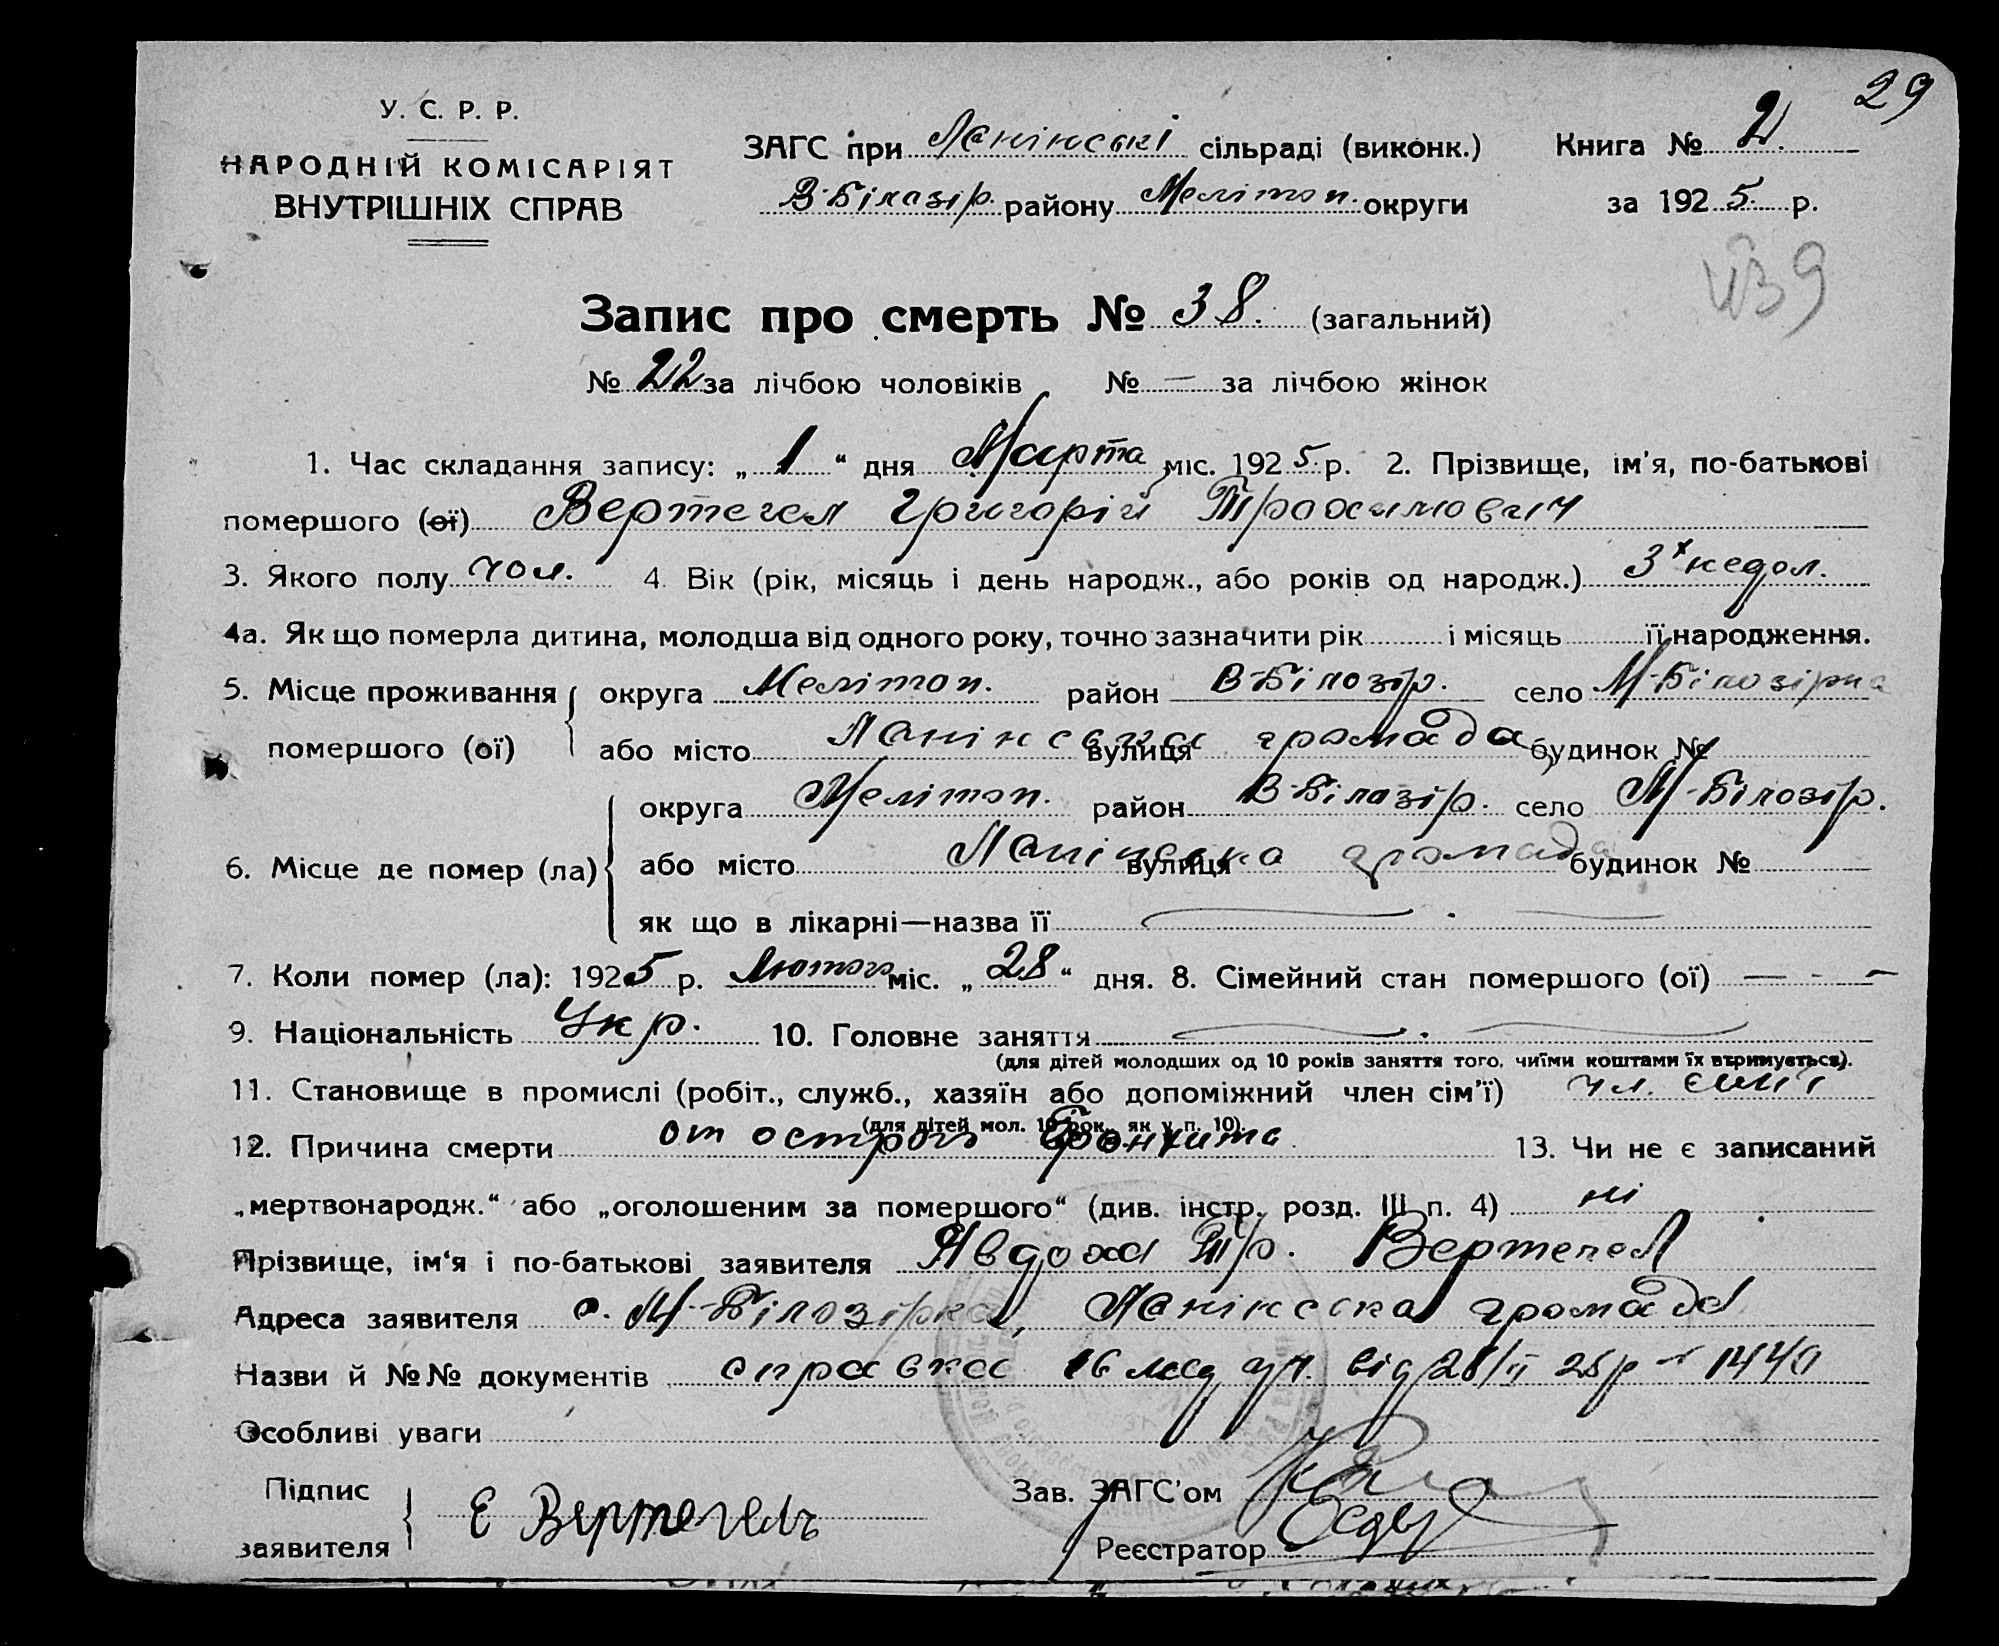 29
У. С. Р. Р.
НАРОДНІЙ КОМІСАРІЯТ
ВНУТРІШНІХ СПРАВ
ЗАГС при Ланінські сільраді (виконк.)
В-Білазір. району Мелітоп. округи
Книга № 2.
за 1925. р.
Запис про смерть № 38. (загальний)
№ 22 за лічбою чоловіків № — за лічбою жінок
1. Час складання запису: „ 1 “ дня Марта міс. 1925 р. 2. Прізвище, ім'я, по-батькові
помершого (ої) Вертегел Григорій
3. Якого полу чол. 4. Вік (рік, місяць і день народж., або років од народж.) 3х недол.
4а. Як що померла дитина, молодша від одного року, точно зазначити рік і місяць її народження.
5. Місце проживання помершого (ої) округа Мелітоп. район В-Білозір. село М-Білозірка
або місто Ланінська вулиця громада будинок №
6. Місце де помер (ла) округа Мелітоп. район В-Білазір. село М-Білозір.
або місто Ланінська вулиця громада будинок №
як що в лікарні—назва її —
7. Коли помер (ла): 1925 р. Лютого міс. „ 28 “ дня. 8. Сімейний стан помершого (ої) — - -
9. Національність Укр. 10. Головне заняття —
(для дітей молодших од 10 років заняття того, чиїми коштами їх втримується).
11. Становище в промислі (робіт., служб., хазяїн або допоміжний член сім'ї) чл.
(для дітей мол. 10 рок., як у п. 10).
12. Причина смерти от острого бронхита. 13. Чи не є записаний
„мертвонародж.“ або „оголошеним за помершого“ (див. інстр. розд. III п. 4) ні
Прізвище, ім'я і по-батькові заявителя Явдоха Тр. Вертегел
Адреса заявителя с. М-Білозірка, Ланінська громада
Назви й №№ документів справка 16 від 28/II 25р
Особливі уваги
Підпис заявителя Е Вертегель
Зав. ЗАГС'ом
Реєстратор